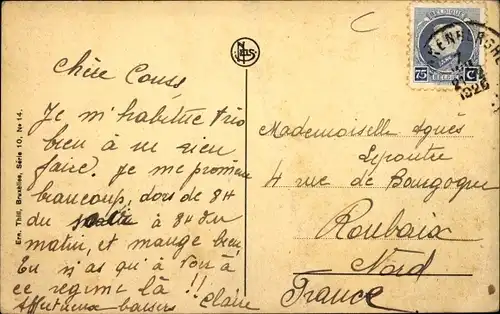 Ern. Thill, Bruxelles, Série 10, No 14.
Nels
Chère Couss
Je m'habitue très
bien à ne rien
faire. Je me promène
beaucoup, dors de 8 H
du matin à 8 H du
matin, et mange bien.
Tu n'as qu'à voir à
ce régime là !!
Affectueux baisers Claire
BELGIQUE
75 C
BELGIE
1926
Mademoiselle Agnès
Lepoutre
4 rue de Bourgogne
Roubaix
Nord
France